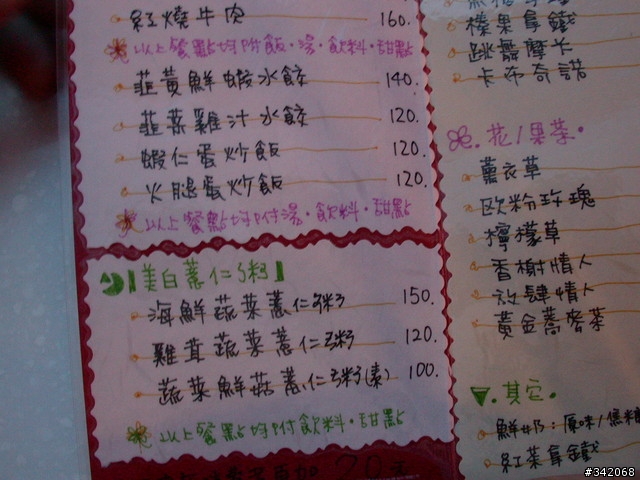 紅燒牛肉 160.
以上餐點均附飯·湯·飲料·甜點
韮黃鮮蝦水餃 140.
韮菜雞汁水餃 120.
蝦仁蛋炒飯 120.
火腿蛋炒飯 120.
以上餐點均附湯·飲料·甜點
美白薏仁粥
海鮮蔬菜薏仁粥 150.
雞茸蔬菜薏仁粥 120.
蔬菜鮮菇薏仁粥(素) 100.
以上餐點均附飲料·甜點
榛果拿鐵
跳舞摩卡
卡布奇諾
花/果茶·
薰衣草
歐粉玫瑰
檸檬草
香榭情人
放肆情人
黃金蕎麥茶
其它·
鮮奶:原味/焦糖
紅茶拿鐵
#342068